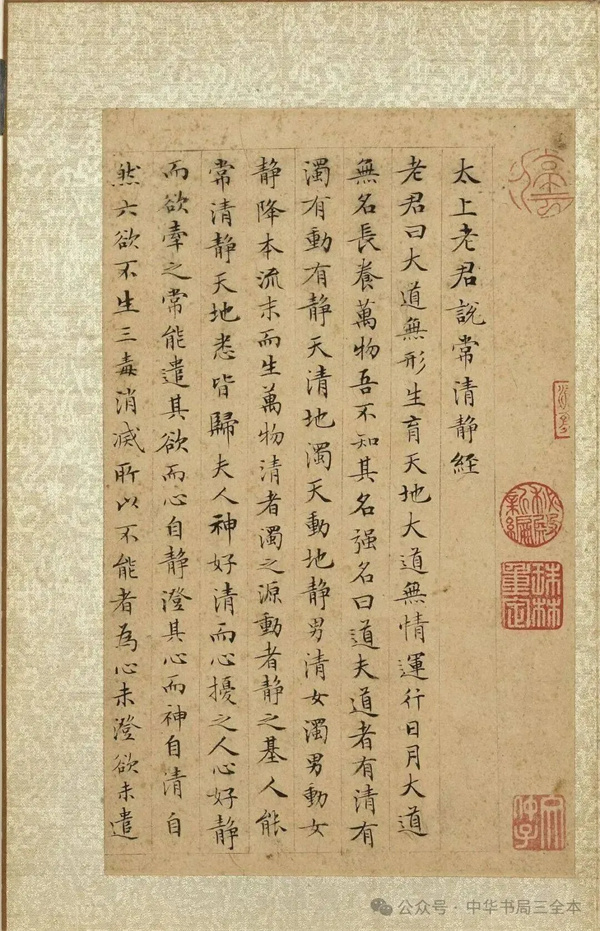 太上老君說常清静经
老君曰大道無形生育天地大道無情運行日月大道
無名長養萬物吾不知其名强名曰道夫道者有清有
濁有動有静天清地濁天動地静男清女濁男動女
静降本流末而生萬物清者濁之源動者静之基人能
常清静天地悉皆歸夫人神好清而心擾之人心好静
而欲牽之常能遣其欲而心自静澄其心而神自清自
然六欲不生三毒消滅所以不能者為心未澄欲未遣
秘殿新編
珠林重定
公众号·中华书局三全本